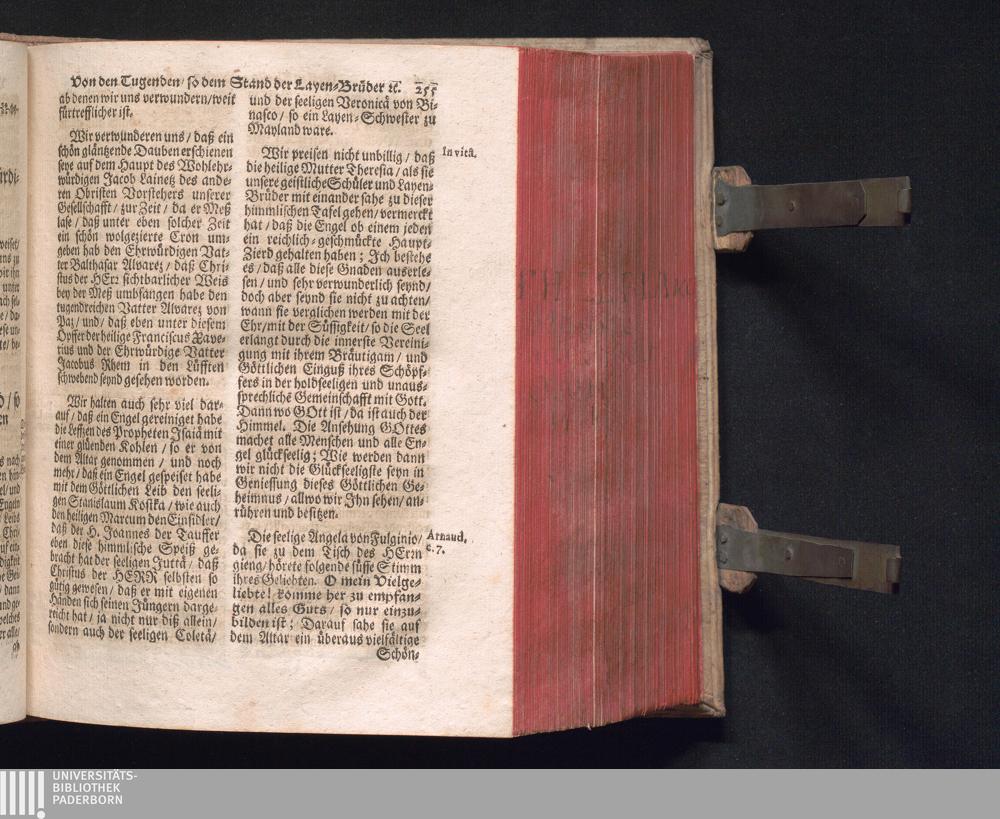 Von den Tugenden / so dem Stand der Layen-Brüder ꝛc. 255
ab denen wir uns verwundern / weit
fürtrefflicher ist.
Wir verwunderen uns / daß ein
schön gläntzende Dauben erschienen
seye auf dem Haupt des Wohlehr-
würdigen Jacob Lainetz des ande-
ren Obristen Vorstehers unserer
Gesellschafft / zur Zeit / da er Meß
lase / daß unter eben solcher Zeit
ein schön wolgezierte Cron um-
geben hab den Ehrwürdigen Vat-
ter Balthasar Alvarez / daß Chri-
stus der HErꝛ sichtbarlicher Weis
bey der Meß umbfangen habe den
tugendreichen Vatter Alvarez von
Paz / und / daß eben unter diesem
Opffer der heilige Franciscus Xave-
rius und der Ehrwürdige Vatter
Jacobus Rhem in den Lüfften
schwebend seynd gesehen worden.
Wir halten auch sehr viel dar-
auf / daß ein Engel gereiniget habe
die Leffzen des Propheten Isaiä mit
einer glüenden Kohlen / so er von
dem Altar genommen / und noch
mehr / daß ein Engel gespeiset habe
mit dem Göttlichen Leib den seeli-
gen Stanislaum Kostka / wie auch
den heiligen Marcum den Einsidler /
daß der H. Joannes der Tauffer
eben diese himmlische Speiß ge-
bracht hat der seeligen Juttä / daß
Christus der HERR selbsten so
gütig gewesen / daß er mit eigenen
Händen sich seinen Jüngern darge-
reicht hat / ja nicht nur diß allein /
sondern auch der seeligen Coletä /
und der seeligen Veronicä von Bi-
nasco / so ein Layen-Schwester zu
Mayland ware.
Wir preisen nicht unbillig / daß
die heilige Mutter Theresia / als sie
unsere geistliche Schüler und Layen-
Brüder mit einander sahe zu dieser
himmlischen Tafel gehen / vermerckt
hat / daß die Engel ob einem jeden
ein reichlich-geschmückte Haupt-
Zierd gehalten haben ; Ich bestehe
es / daß alle diese Gnaden auserle-
sen / und sehr verwunderlich seynd /
doch aber seynd sie nicht zu achten /
wann sie verglichen werden mit der
Ehr / mit der Süssigkeit / so die Seel
erlangt durch die innerste Vereini-
gung mit ihrem Bräutigam / und
Göttlichen Einguß ihres Schöpf-
fers in der holdseeligen und unaus-
sprechliche Gemeinschafft mit Gott.
Dann wo GOtt ist / da ist auch der
Himmel. Die Ansehung GOttes
machet alle Menschen und alle En-
gel glückseelig ; Wie werden dann
wir nicht die Glückseeligste seyn in
Geniessung dieses Göttlichen Ge-
heimnus / allwo wir Ihn sehen / an-
rühren und besitzen.
Die seelige Angela von Fulginio /
da sie zu dem Tisch des HErrn
gieng / hörete folgende süsse Stimm
ihres Geliebten. O mein Vielge-
liebte! komme her zu empfan-
gen alles Guts / so nur einzu-
bilden ist ; Darauf sahe sie auf
dem Altar ein überaus vielfältige
Schön-
In vitâ.
Arnaud,
c. 7.
UNIVERSITÄTS-
BIBLIOTHEK
PADERBORN